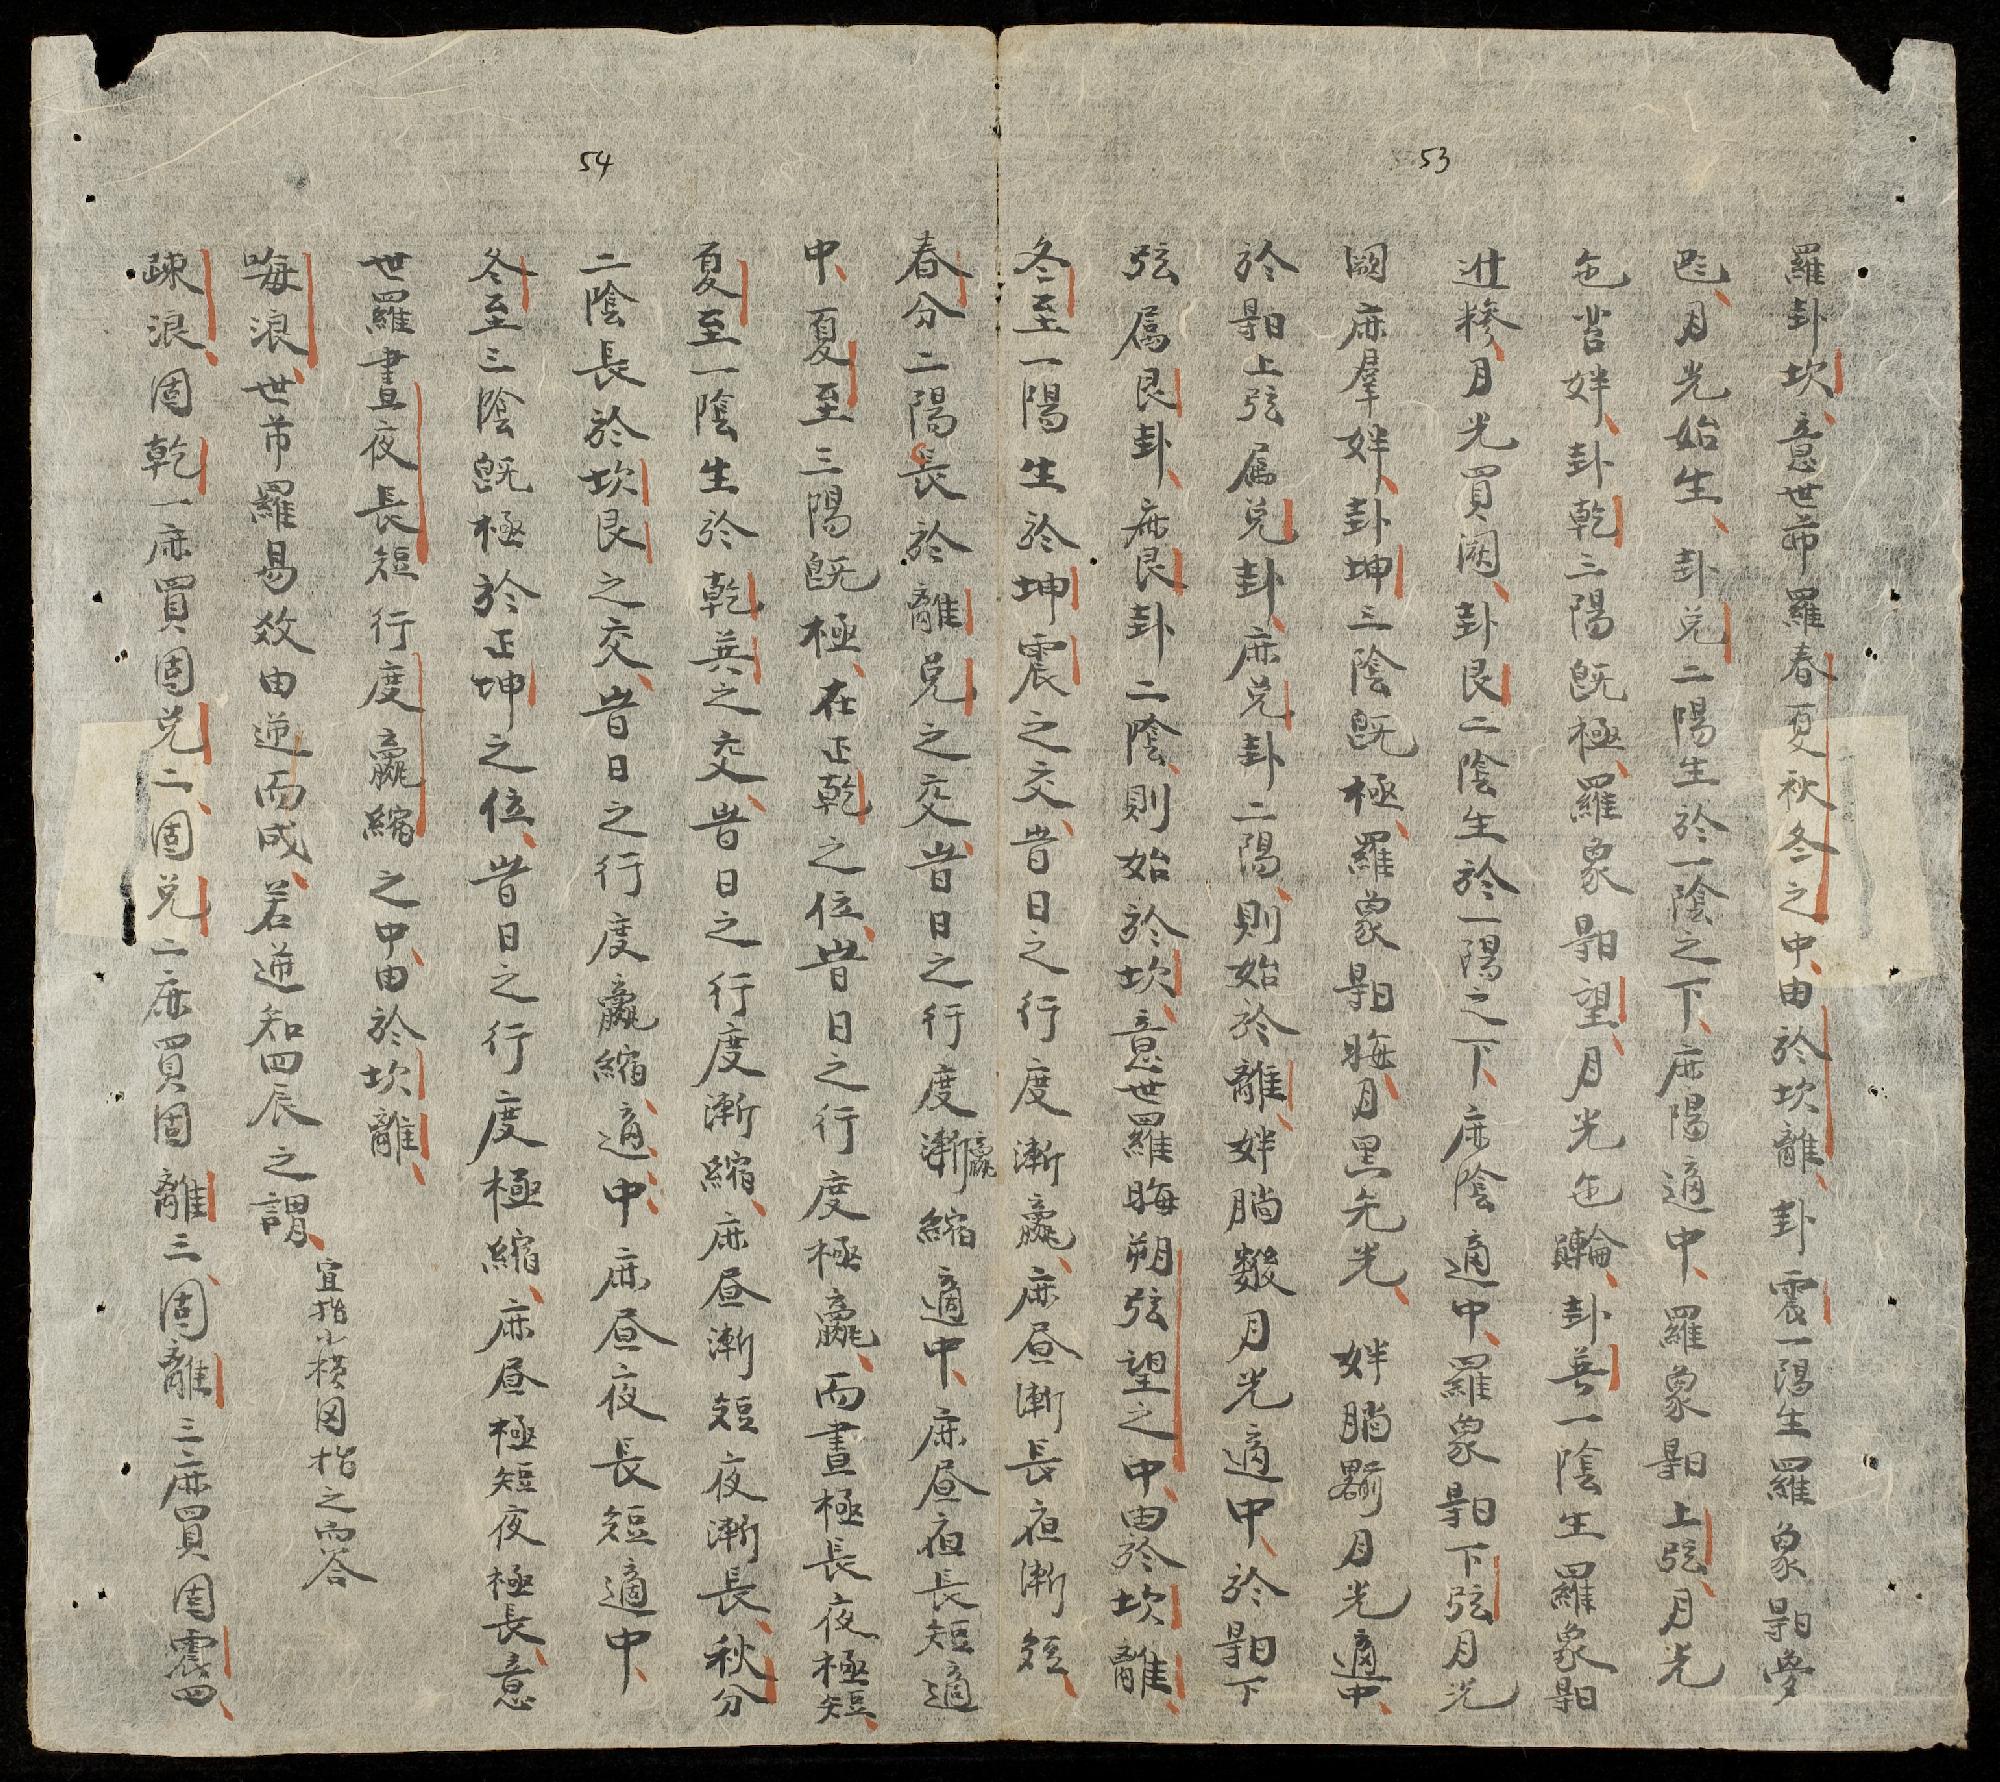 53
羅卦坎意世帀羅春夏秋冬之中由於坎離卦震一陽生羅象𣈜
月光始生卦兌二陽生於一陰之下麻陽適中羅象𣈜上弦月光
卦乾三陽既極羅象𣈜望月光卦巽一陰生羅象𣈜
月光買闕卦艮二陰生於一陽之下麻陰適中羅象𣈜下弦月光
闕麻羣姅卦坤三陰既極羅象𣈜晦月黑无光姅月光適中
於𣈜上弦属兌卦麻兌卦二陽則始於離姅月光適中於𣈜下
弦属艮卦麻艮卦二陰則始於坎意世羅晦朔弦望之中由於坎離
冬至一陽生於坤震之交昔日之行度漸贏麻昼漸長夜漸短
春分二陽長於離兌之交昔日之行度漸贏縮適中麻昼夜長短適
54
中夏至三陽既極在正乾之位昔日之行度極贏而晝極長夜極短
夏至一陰生於乾巽之交昔日之行度漸縮麻昼漸短夜漸長秋分
二陰長於坎艮之交昔日之行度贏縮適中麻昼夜長短適中
冬至三陰既極於正坤之位昔日之行度極縮麻昼極短夜極長意
世羅晝夜長短行度贏縮之中由於坎離
每浪世帀羅易效由逆而成若逆知四辰之謂宜指小横圖指之而答
疎浪固乾一麻買固兌二固兌二麻買固離三固離三麻買固震四